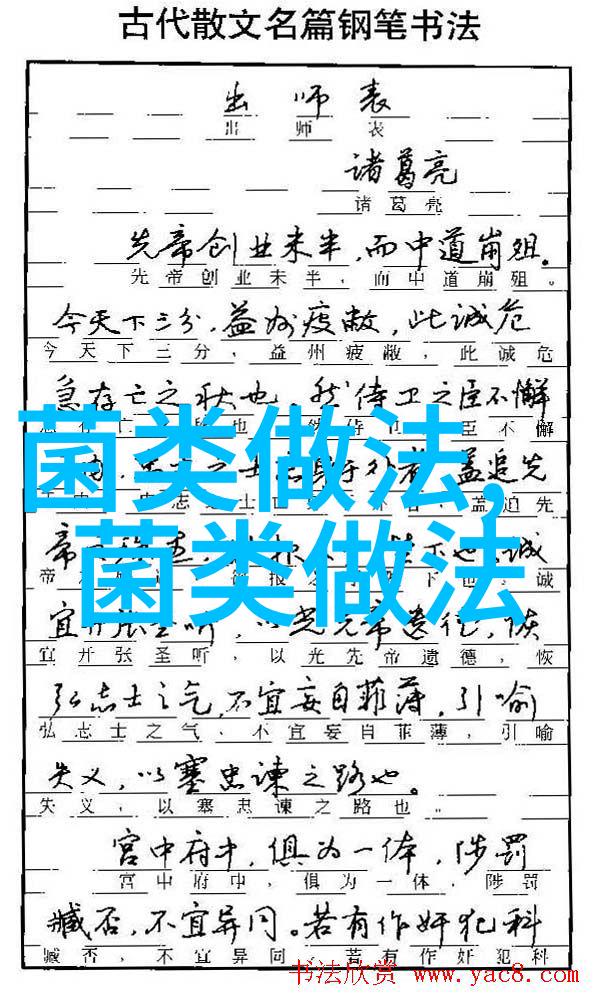 古代散文名篇钢笔书法
出师表
出师表
诸葛亮
诸葛亮
先帝创业未半,而中道崩殂。
先帝创业未半,而中道崩殂。
今天下三分,益州疲敝,此诚危
今天下三分,益州疲敝,此诚危
急存亡之秋也。然侍卫之臣不懈
臣不懈
菌类做法,
盖追先
盖追先
菌类做法
诚
诚
宜开张圣听,以光先帝遗德,恢
宜开张圣听,以光先帝遗德,恢
弘志士之气,不宜妄自菲薄,引喻
弘志士之气,不宜妄自菲薄,引喻
失义,以塞忠谏之路也。
失义,以塞忠谏之路也。
宫中府中,俱为一体,陟罚
宫中府中,俱为一体,陟罚
臧否,不宜异同。若有作奸犯科
臧否,不宜异同。若有作奸犯科
书法欣赏 www.yac8.com